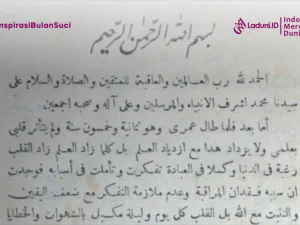 #InspirasiBulanSuci
LaduniID
بسم الله الرّحمن الرّحيم
الحمد لله رب العالمين والعاقبة للمتقين والصلاة والسلام على
سيدنا محمد اشرف الانبياء والمرسلين وعلى آله وصحبه اجمعين
أما بعد فلما طال عمرى وهو ثمانية وخمسون سنة ولم يتأثر قلبى
بعلمى ولا يزداد هدا مع ازدياد العلم بل كلما زاد العلم زاد القلب
رغبة فى الدنيا وكسلا فى العبادة تفكرت وتأملت فى أسبابه فوجدت
ان سببه فقدان المراقبة وعدم ملازمة التفكر مع ضعف اليقين
مع الله بل القلب كل يوم وليلة بالشهوات والخطايا